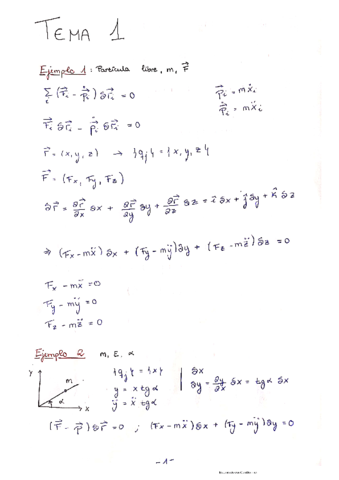 TEMA 1
Ejemplo 1: Partícula libre, m, F⃗
∑ᵢ (F⃗ᵢ - ṗ⃗ᵢ) δr⃗ᵢ = 0    pᵢ = mẋᵢ
ṗᵢ = mẍᵢ
F⃗ᵢ δr⃗ᵢ - ṗ⃗ᵢ δr⃗ᵢ = 0
r⃗ = (x, y, z) → {qⱼ} = {x, y, z}
F⃗ = (Fx, Fy, Fz)
δr⃗ = ∂r⃗/∂x δx + ∂r⃗/∂y δy + ∂r⃗/∂z δz = i⃗ δx + j⃗ δy + k⃗ δz
⇒ (Fx - mẍ) δx + (Fy - mÿ) δy + (Fz - mz̈) δz = 0
Fx - mẍ = 0
Fy - mÿ = 0
Fz - mz̈ = 0
Ejemplo 2 m, E, α
y
m
α
x
{qⱼ} = {x}
y = x tg α
ÿ = ẍ tg α
δx
δy = ∂y/∂x δx = tg α δx
(F⃗ - ṗ⃗) δr⃗ = 0 ; (Fx - mẍ) δx + (Fy - mÿ) δy = 0
-1-